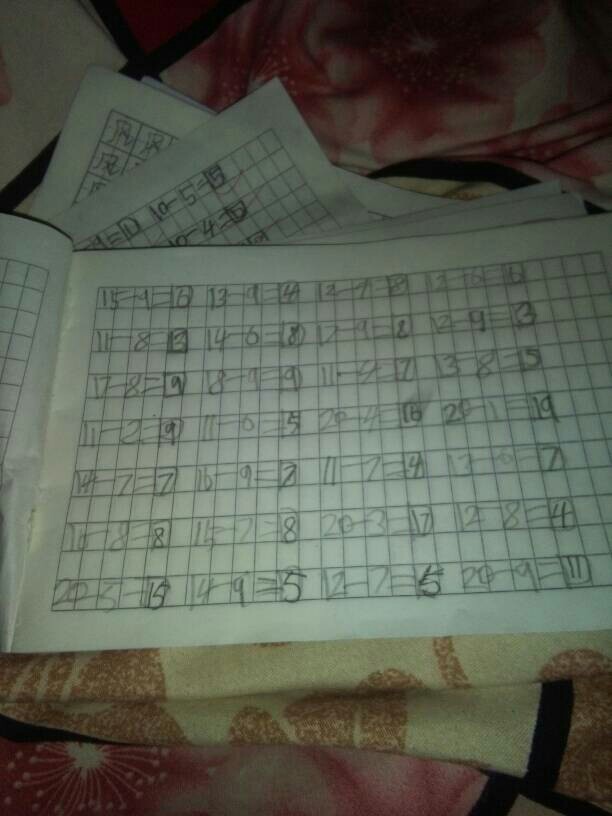 10-5=5
10-4=6
15-9=6 13-9=4 12-4=8 12-6=6
11-8=3 14-6=8 17-9=8 12-9=3
17-8=9 18-9=9 11-4=7 13-8=5
11-2=9 11-6=5 20-4=16 20-1=19
14-7=7 16-9=7 11-7=4 13-6=7
16-8=8 15-7=8 20-3=17 12-8=4
20-5=15 14-9=5 12-7=5 20-9=11